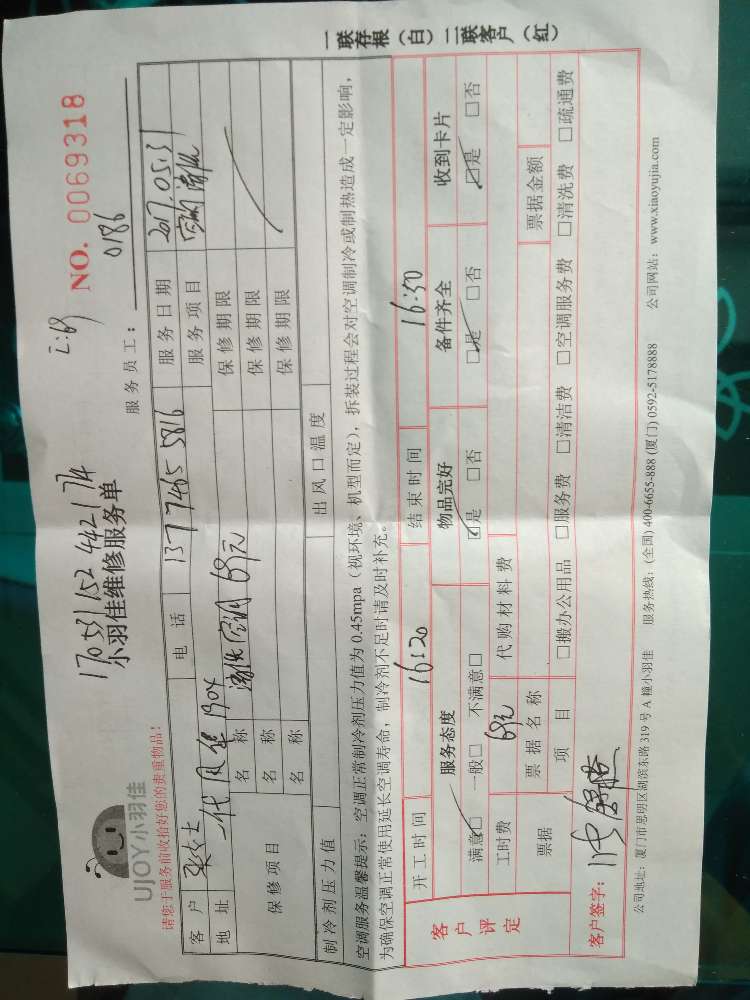 170531152442174
2:69
UJOY小羽佳
小羽佳维修服务单
NO. 0069318
请您于服务前收拾好您的贵重物品!
服务员工: 0186
客户 电话 13774655816 服务日期 2017.05.31
地址 二代 1904 服务项目 空调清洗
保修项目 名称 清洗空调 69元 保修期限
名称 保修期限
名称 保修期限
制冷剂压力值 出风口温度
空调服务温馨提示: 空调正常制冷剂压力值为 0.45mpa (视环境、机型而定), 拆装过程会对空调制冷或制热造成一定影响,
为确保空调正常使用延长空调寿命, 制冷剂不足时请及时补充。
一联存根 (白) 二联客户 (红)
客户评定
开工时间 16:20 结束时间 16:50
服务态度 物品完好 备件齐全 收到卡片
满意☑ 一般□ 不满意□ ☑是 □否 ☑是 □否 ☑是 □否
工时费 69元 代购材料费
票据 票据名称 票据金额
项目 □搬办公用品 □服务费 □清洁费 □空调服务费 □清洗费 □疏通费
客户签字:
公司地址: 厦门市思明区湖滨东路 319 号 A 幢小羽佳 服务热线: (全国) 400-6655-888 (厦门) 0592-5178888 公司网站: www.xiaoyujia.com